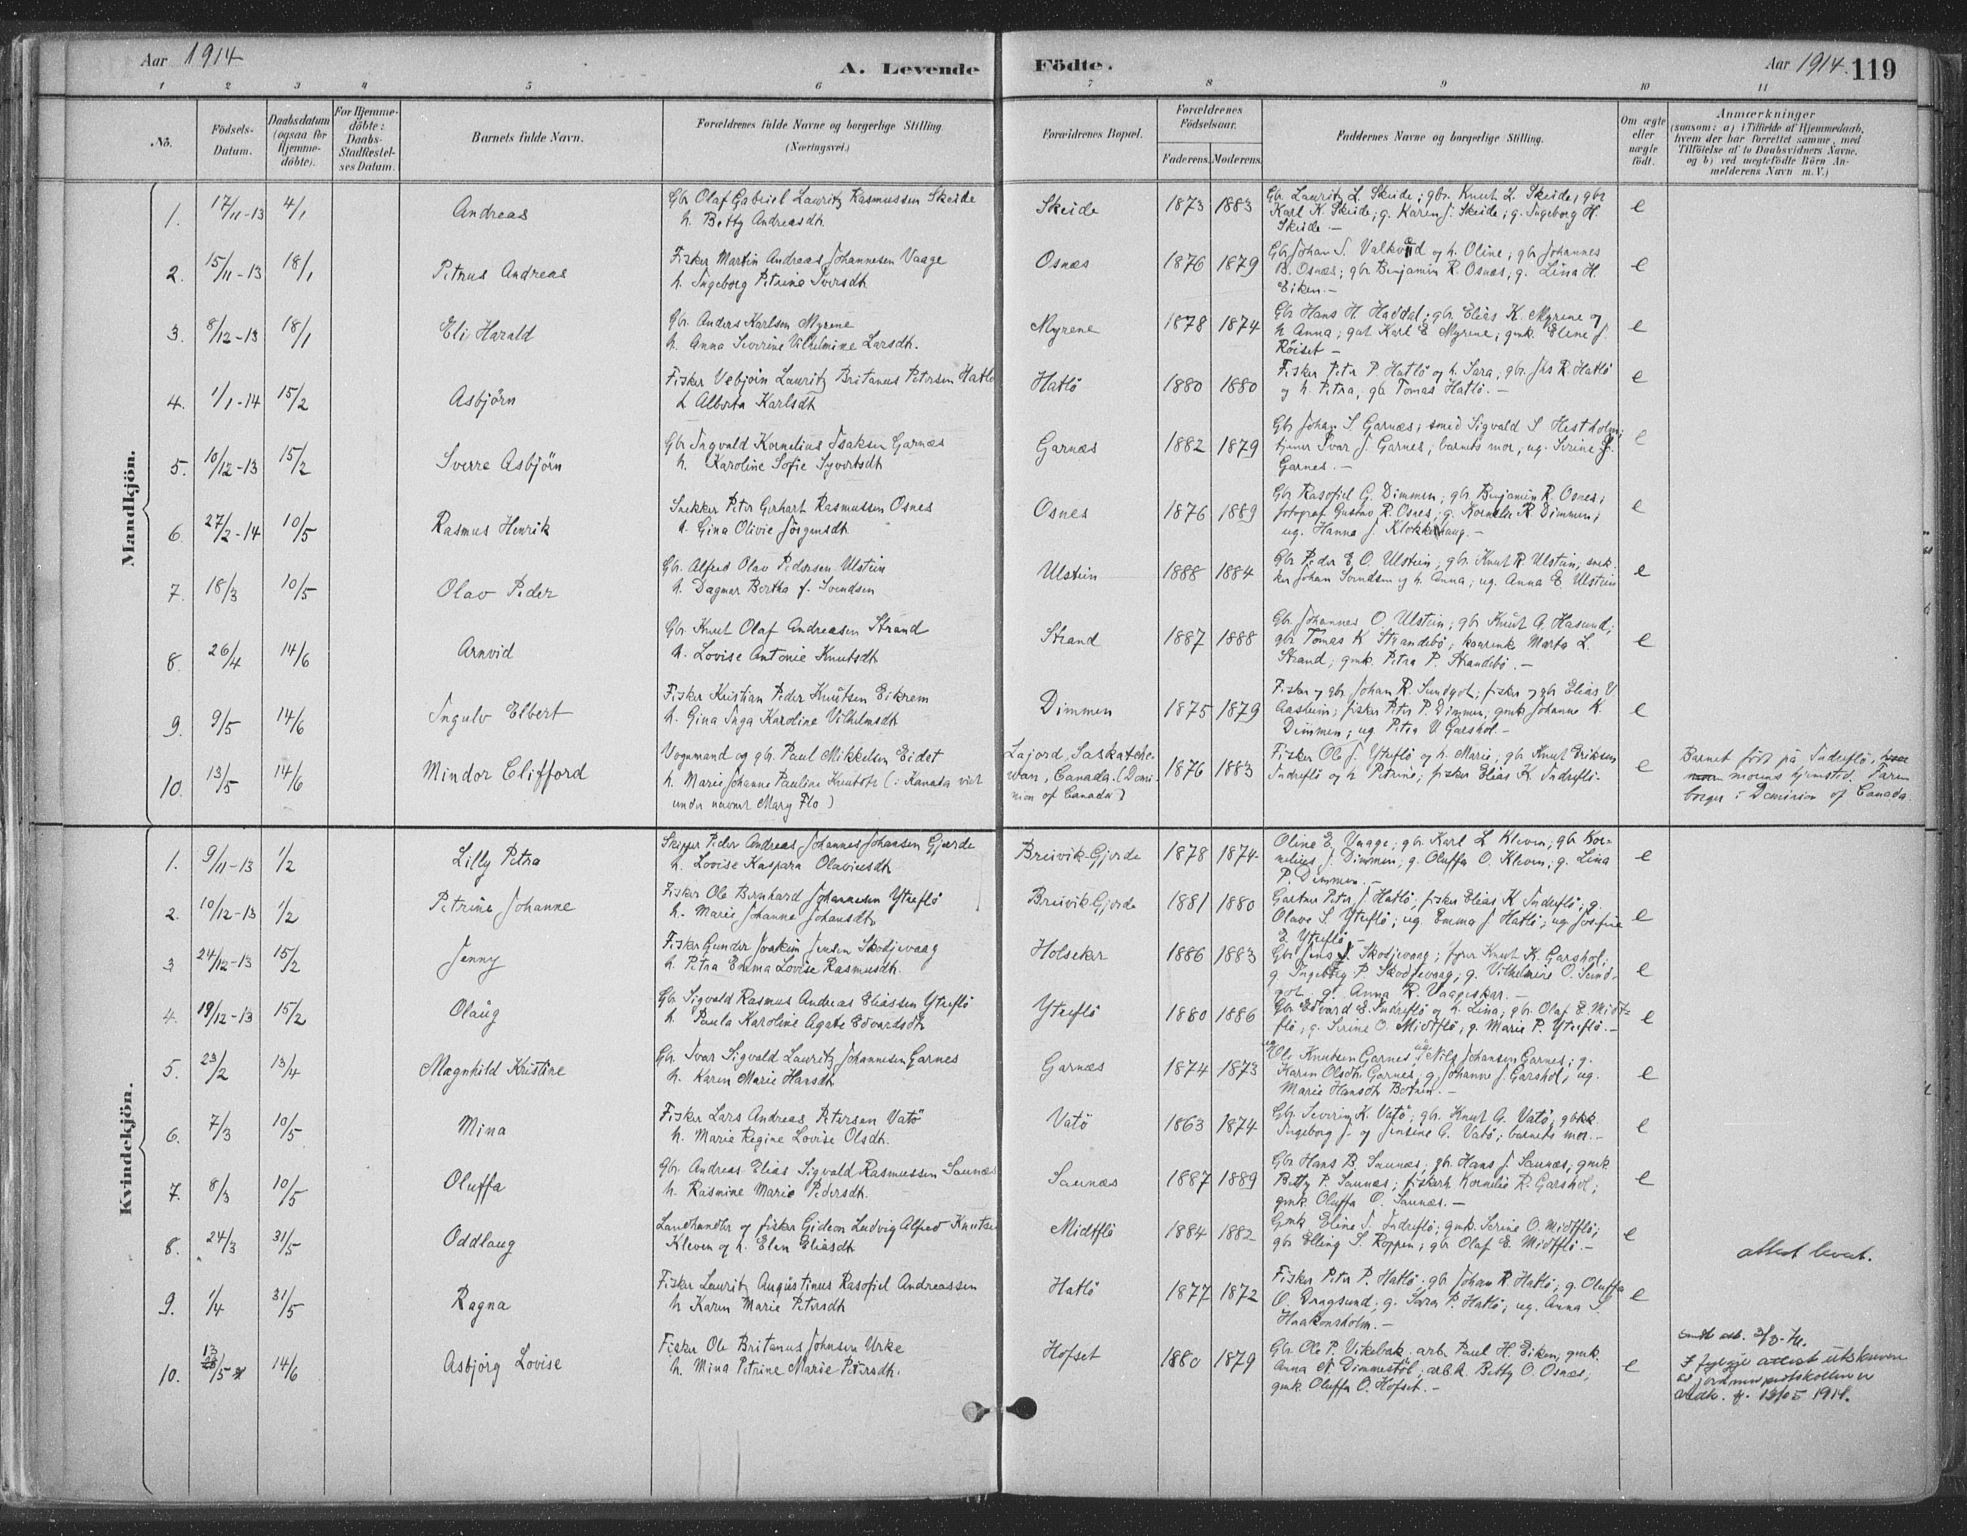 Aar 1914
A. Levende Födte.
Aar 1914. 119
1 2 3 4 5 6 7 8 9 10 11
No.
Födsels-
Datum.
Daabsdatum
(ogsaa for
Hjemme-
döbte).
For Hjemme-
döbte:
Daabs-
Stadfæstel-
ses Datum.
Barnets fulde Navn.
Forældrenes fulde Navne og borgerlige Stilling
(Næringsvei.)
Forældrenes Bopæl.
Forældrenes
Födselsaar.
Faderens. Moderens.
Faddernes Navne og borgerlige Stilling.
Om ægte
eller
uægte
födt.
Anmærkninger
(saasom: a) i Tilfælde af Hjemmedaab,
hvem der har forrettet samme, med
Tilföielse af to Daabsvidners Navne,
og b) ved uægtefödte Börn An-
melderens Navn m. V.)
Mandkjön.
1. 17/11-13 4/1 Andreas
Gbr Olaf Gabriel Lauritz Rasmussen Skeide
h. Betty Andreasdt.
Skeide 1873 1883
Gbr Lauritz L. Skeide; gbr. Knut L. Skeide, gbr
Karl K. Skeide; g. Karen J. Skeide; g. Ingeborg H.
Skeide. —
e
2. 15/11-13 18/1 Petrus Andreas
Fisker Martin Andreas Johannesen Vaage
h. Ingeborg Petrine Iversdt.
Osnæs 1876 1879
Gbr Johan S. Valkvæ d og h. Oline; gbr Johannes
B. Osnæs; gbr Benjamin R. Osnæs; g. Lina H.
Eiken. —
e
3. 8/12-13 18/1 Eli Harald
Gbr. Anders Karlsen Myrene
h. Anna Severine Vilhelmine Larsdt.
Myrene 1878 1874
Gbr Hans H Haddal; gbr. Elias K. Myrene og
h Anna; gut Karl E Myrene; gmk. Eline J.
Röiset —
e
4. 1/1-14 15/2 Asbjörn
Fisker Vebjörn Lauritz Britanus Petersen Hatlö
h Alberta Karlsdt
Hatlö 1880 1880
Fisker Peter P. Hatlö og h. Sara; gbr. Jhs R. Hatlö
og h. Petra, gb Tomas Hatlö. —
e
5. 10/12-13 15/2 Sverre Asbjörn
Gbr Ingvald Kornelius Isaksen Garnæs
h. Karoline Sofie Syvertsdt
Garnæs 1882 1879
Gbr Johan S. Garnæs; smed Sigvald S Hestholm;
tjener Ivar J. Garnes, barnets mor, ug. Serine J.
Garnes. —
e
6. 27/2-14 10/5 Rasmus Henrik
Snekker Peter Gerhart Rasmussen Osnes
h. Gina Olivie Jörgensdt.
Osnes 1876 1889
Gbr Rasofiel G. Dimmen; gbr. Benjamin R. Osnes;
fotograf Gustav R. Osnes; g. Kornelie R. Dimmen;
ug. Hanna J. Klokkerhaug. —
e
7. 18/3 10/5 Olav Peder
Gbr. Alfred Olav Pedersen Ulstein
h. Dagmar Bertha f. Svendsen
Ulstein 1888 1884
Gbr Peder E. O. Ulstein; gbr. Knut R. Ulstein, snek-
ker Johan Svendsen og h. Anna; ug. Anna E Ulstein
e
8. 26/4 14/6 Arnvid
Gbr. Knut Olaf Andreasen Strand
h. Lovise Antonie Knutsdt
Strand 1887 1888
Gbr Johannes O. Ulstein; gbr Knut A Hasund;
gbr Tomas K. Strandebö; kaarenke Marta L.
Strand; gmk. Petra P. Strandebö. —
e
9. 9/5 14/6 Ingulv Elbert
Fisker Kristian Peder Knutsen Eikrem
h. Gina Inga Karoline Vilhelmsdt
Dimmen 1875 1879
Fisker og gbr Johan R. Sundgot; fisker og gb Elias V
Aasheim; fisker Peter P. Dimmen; gmk Johanne K.
Dimmen; ug Petra V. Garshol —
e
10. 13/5 14/6 Mindor Clifford
Vognmand og gbr. Paul Mikkelsen Eidet
h. Marie Johanne Pauline Knutsdt. (i Kanada viet
under navnet Mary Flo)
Lajord, Saskatche-
wan, Canada. (Domi-
nion of Canada)
1876 1883
Fisker Ole J. Ytreflö og h. Marie; gbr Knut Eriksen
Indreflö og h Petrine; fisker Elias K Indreflö.
e
Barnet födt på Indreflö,
morens hjemsted. Faren
borger i Dominion of Canada.
Kvindekjön.
1. 9/11-13 1/2 Lilly Petra
Skipper Peder Andreas Johannes Johansen Gjærde
h. Lovise Kaspara Olaviusdt
Breivik-Gjerde 1878 1874
Oline E. Vaage; gbr. Karl L Kleven; gbr Kor-
nelius J. Dimmen; g. Oluffa O. Kleven; g. Lina
P. Dimmen. —
e
2. 10/12-13 1/2 Petrine Johanne
Fisker Ole Bernhard Johannesen Ytreflö
h. Marie Johanne Johansdt.
Breivik Gjerde 1881 1880
Gartner Peter J. Hatlö, fisker Elias K Indreflö; g.
Olave S. Ytreflö; ug. Emma J Hatlö; ug Josfine
E. Ytreflö —
e
3 24/12-13 15/2 Jenny
Fisker Gunder Joakim Jensen Skodjevaag
h. Petra Emma Lovise Rasmusdt.
Holseker 1886 1883
Gbr Jens J. Skodjevaag; fyrer Knut K. Garshol;
g Ingeborg P. Skodjevaag; g. Vilhelmine O. Sund-
got. g. Anna R. Vaageskar. —
e
4. 19/12-13 15/2 Olaug
Gbr. Sigvald Rasmus Andreas Eliassen Ytreflö
h. Paula Karoline Agate Edvardsdt
Ytreflö 1880 1886
Gbr Edvard E. Indreflö og h. Lina; gbr Olaf E. Midt-
flö; g. Serine O. Midtflö; g. Marie P. Ytreflö. —
e
5. 23/2 13/4 Magnhild Kristine
Gbr. Ivar Sigvald Lauritz Johannesen Garnes
h. Karen Marie Hansdt
Garnæs 1874 1873
ug Ole Knutsen Garnes ug. Nils Johansen Garnes; g.
Karen Olsdt. Garnes, g Johanne J Garshol; ug.
Marie Hansdt Botnen. —
e
6. 7/3 10/5 Mina
Fisker Lars Andreas Petersen Vatö
h. Marie Regine Lovise Olsdt.
Vatö 1863 1874
Gbr. Severin K. Vatö; gbr. Knut A. Vatö; gbkk.
Ingeborg J. og Jensine A. Vatö; barnets mor. —
e
7. 8/3 10/5 Oluffa
Gbr. Andreas Elias Sigvald Rasmussen Saunæs
h. Rasmine Marie Pedersdt.
Saunæs 1887 1889
Gbr Hans B. Saunæs; gb. Hans J. Saunæs; gmk
Betty P. Saunæs; fiskerk Kornelie R. Garshol;
gmk Oluffa O. Saunæs. —
e
8. 24/3 31/5 Oddlaug
Landhandler og fisker Gideon Ludvig Alfred Knutsen
Kleven og h. Elen Eliasdt
Midtflö 1884 1882
Gmk Eline S. Indreflö; gmk. Serine O. Midtflö;
gbr Elling S. Roppen; gbr Olaf E. Midtflö. —
e
attest levert.
9. 1/4 31/5 Ragna
Fisker Lauritz Augustinus Rasofiel Andreassen
h Karen Marie Petersdt
Hatlö 1877 1872
Fisker Peter P. Hatlö. gbr Johan R. Hatlö; g. Oluffa
O. Dragsund; g. Sara P. Hatlö; ug. Anna S.
Haakonsholm. —
e
10. 13/5 14/6 Asbjörg Lovise
Fisker Ole Britanus Johnsen Urke
h. Mina Petrine Marie Petersdt.
Hofset 1880 1879
Gbr. Ole P. Vikebak. arb. Paul H. Eiken; gmk.
Anna N. Dimmestöl; arb.k. Betty O. Osnæs;
gmk Oluffa O. Hofset. —
e
I fylgje attest utskreven
av jordmorprotokollen er
13/5 1914.